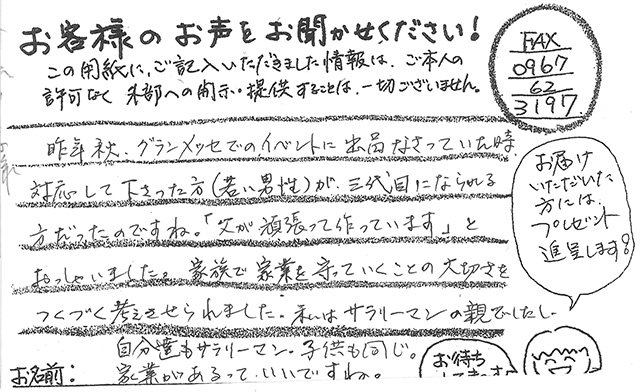 お客様のお声をお聞かせください!
この用紙に、ご記入いただきました情報は、ご本人の
許可なく外部への開示・提供することは、一切ございません。
FAX
0967
62
3197
昨年秋、グランメッセでのイベントに出品なさっていた時
対応して下さった方(若い男性)が、三代目になられる
方だったのですね。「父が頑張って作っています」と
おっしゃいました。家族で家業を守っていくことの大切さを
つくづく考えさせられました。私はサラリーマンの親でしたし
自分達もサラリーマン。子供も同じ。
お名前:
家業があるっていいですね。
お届け
いただいた
方には、
プレゼント
進呈します!
お待ち